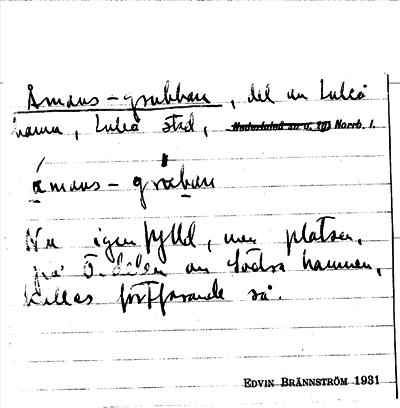 Åmans-grubban, del av Luleå
hamn, Luleå stad, Nederluleå sn o. tg Norrb. l.
åmans- grában
Nu igenfylld, men platsen,
på ö. delen av Södra hamnen,
kallas fortfarande så.
EDVIN BRÄNNSTRÖM 1931